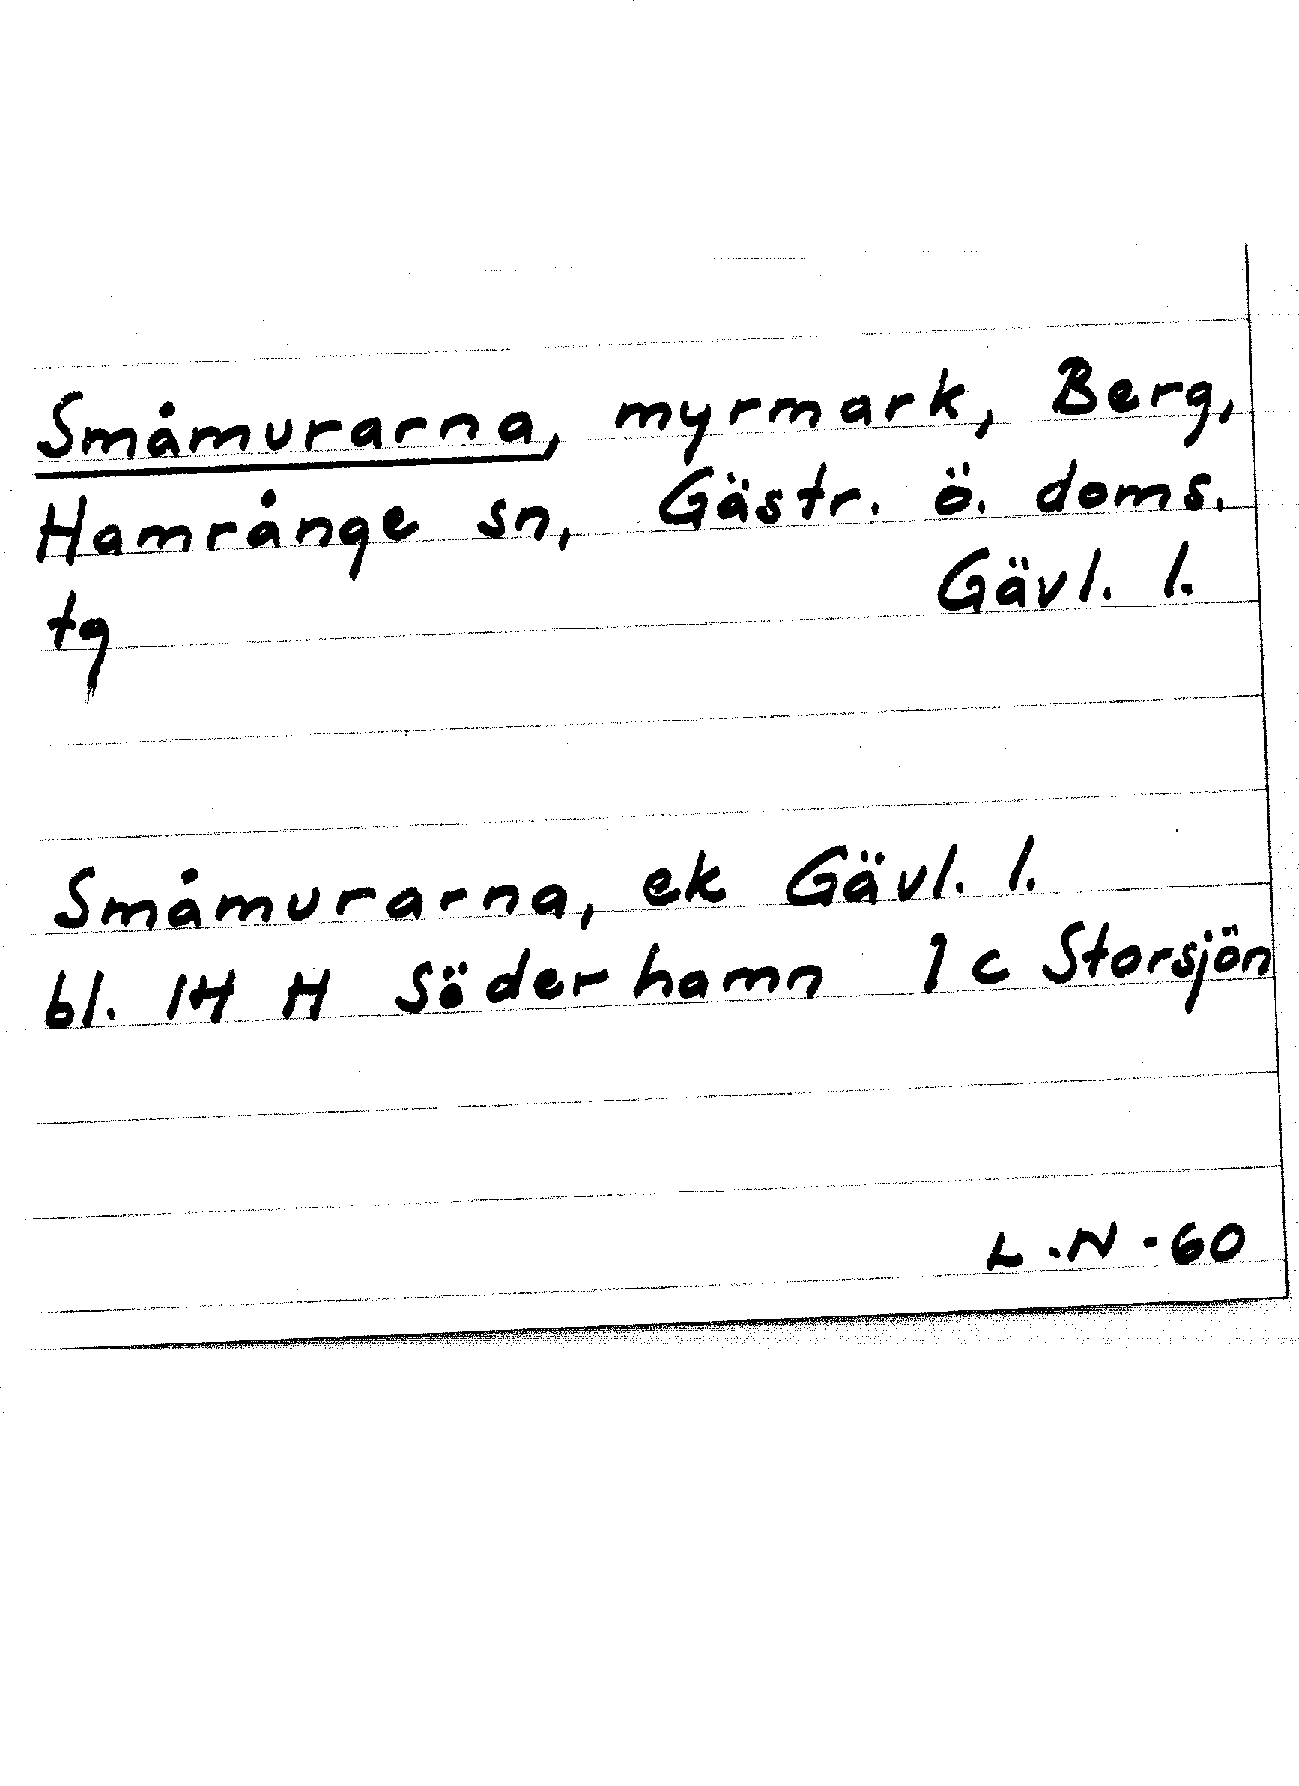 Småmurarna, myrmark, Berg,
Hamrånge sn, Gästr. ö. doms.
tg Gävl. l.
Småmurarna, ek Gävl. l.
bl. 14 H Söderhamn 1 c Storsjön
L.N.60